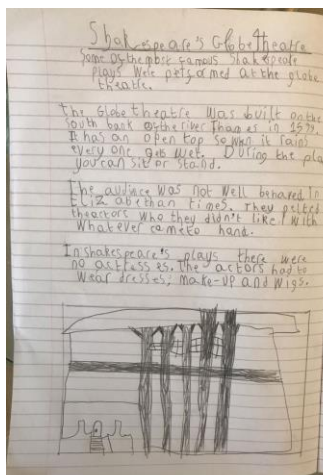 Shakespeare's Globe Theatre
Some of the most famous Shakespeare
plays were performed at the globe
theatre.
The Globe theatre was built on the
south bank of the river Thames in 1599.
It has an open top so when it rains
every one gets wet. During the play
you can sit or stand.
The audience was not well behaved in
Elizabethan times. They pelted
the actors who they didn't like with
whatever came to hand.
In shakespeare's plays there were
no actresses. The actors had to
wear dresses, make-up and wigs.